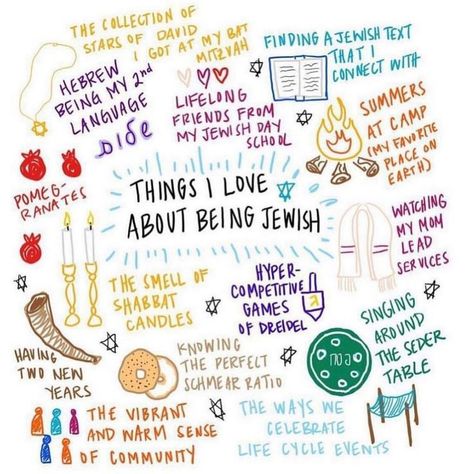 THE COLLECTION OF
STARS OF DAVID
I GOT AT MY BAT
MITZVAH
FINDING A JEWISH TEXT
THAT I
CONNECT WITH
HEBREW
BEING MY 2nd
LANGUAGE
שלום
LIFELONG
FRIENDS FROM
MY JEWISH DAY
SCHOOL
SUMMERS
AT CAMP
(MY FAVORITE
PLACE ON
EARTH)
POMEG-
RANATES
THINGS I LOVE
ABOUT BEING JEWISH
WATCHING
MY MOM
LEAD
SERVICES
THE SMELL OF
SHABBAT
CANDLES
HYPER-
COMPETITIVE
GAMES
OF DREIDEL
SINGING
AROUND
THE SEDER
TABLE
פסח
HAVING
TWO NEW
YEARS
KNOWING
THE PERFECT
SCHMEAR RATIO
THE VIBRANT
AND WARM SENSE
OF COMMUNITY
THE WAYS WE
CELEBRATE
LIFE CYCLE EVENTS